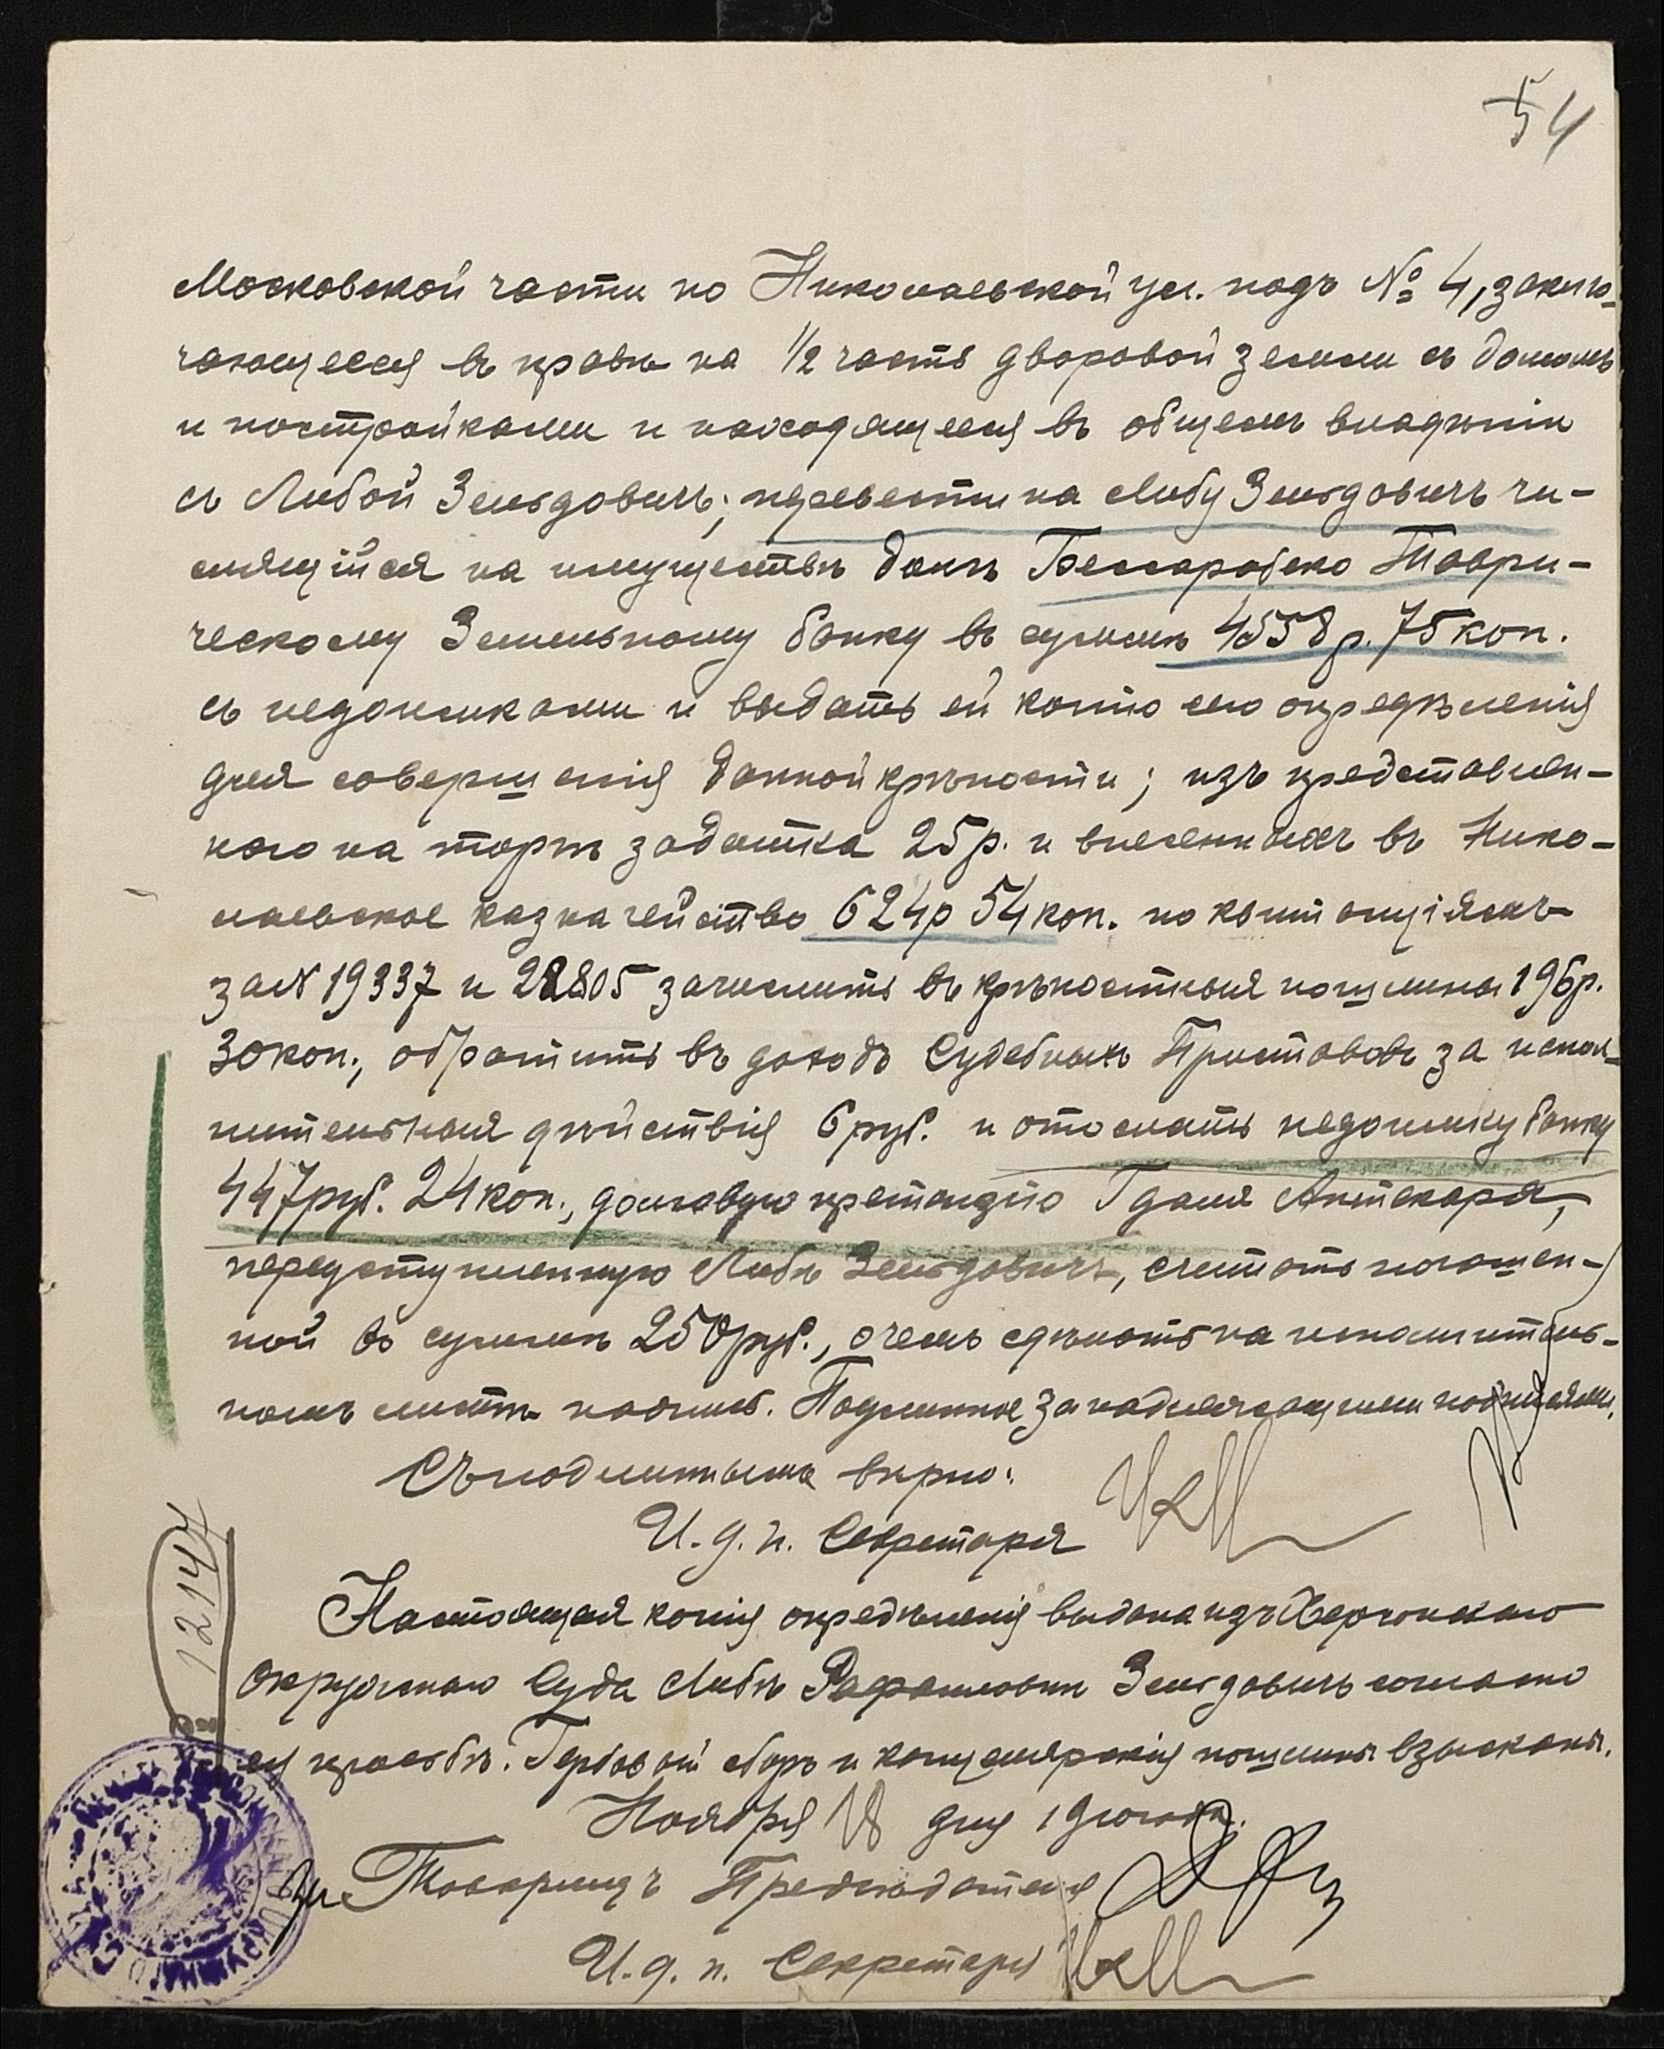 54
Московской части по Николаевской ул. подъ № 4, заклю-
чающееся въ правѣ на 1/2 часть дворовой земли съ домомъ
и постройками и находящееся въ общемъ владѣніи
съ Либой Зельдовичъ; перевести на Либу Зельдовичъ чи-
слящійся на имуществѣ долгъ Бессарабско Таври-
ческому Земельному банку въ суммѣ 4558 р. 75 коп.
съ недоимками и выдать ей копію сего опредѣленія
для совершенія данной крѣпости; изъ представлен-
наго на торгѣ задатка 25 р. и внесенныхъ въ Нико-
лаевское казначейство 624 р 54 коп. по квитанціямъ
за № 19337 и 28805 зачислить въ крѣпостныя пошлины 196 р.
30 коп., обратить въ доходъ Судебныхъ Приставовъ за испол-
нительныя дѣйствія 6 руб. и отослать недоимку банку
447 руб. 24 коп., долговую претензію Гдаля Аптекаря,
переуступленную Либѣ Зельдовичъ, считать погашен-
ной въ суммѣ 250 руб., о чемъ сдѣлать на исполнитель-
номъ листѣ надпись. Подлинное за надлежащими подписями.
Съ подлиннымъ вѣрно:
И. д. п. Секретаря
Настоящая копія опредѣленія выдана изъ Херсонскаго
Окружнаго Суда Либѣ Рафаиловнѣ Зельдовичъ согласно
ея просьбѣ. Гербовый сборъ и канцелярскія пошлины взысканы.
Ноября 18 дня 19 года.
За Товарищъ Предсѣдателя
И. д. п. Секретаря
12147